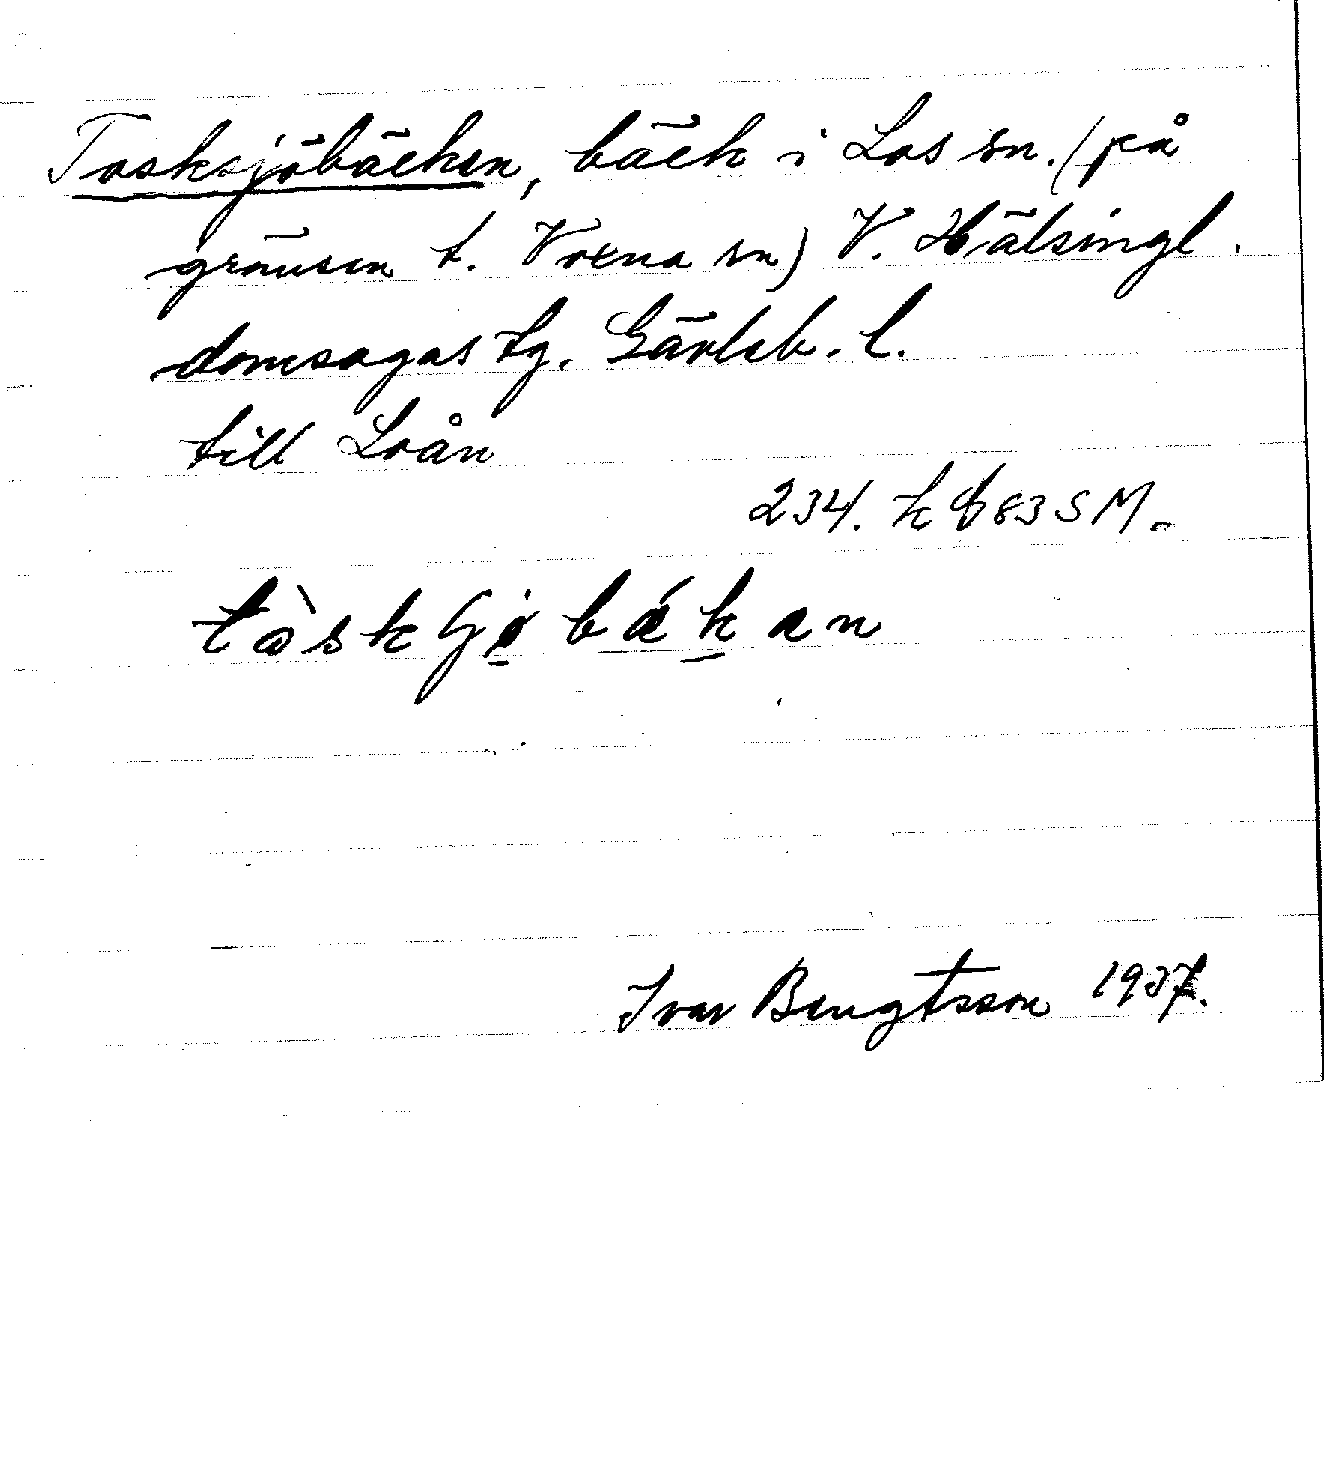 Tosksjöbäcken, bäck i Los sn. (på
gränsen t. Voxna sn) V. Hälsingl.
domsagas tg. Gävleb. l.
till Loån
234. k 83 S M.
Ivar Bengtsson 1937.